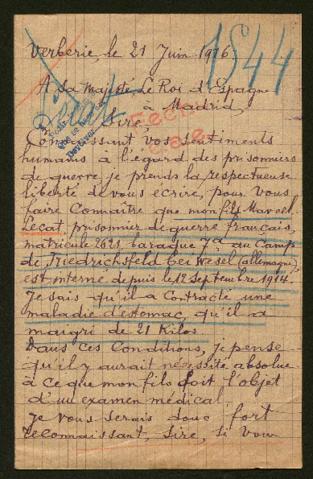 Verberie, le 21 Juin 1916
1844
A sa majesté Le Roi d'Espagne
à Madrid,
Sire,
Connaissant vos sentiments
humains à l'égard des prisonniers
de guerre, je prends la respectueuse
liberté de vous ecrire, pour vous
faire Connaître que mon fils Marcel
Lecat prisonnier de guerre français,
matricule 2621, baraque 7a au Camp
de Friedrichsfeld bei Wesel (allemagne),
est interné depuis le 12 Septembre 1914.
Je sais qu'il a Contracté une
maladie d'estomac, qu'il a
maigri de 21 Kilos
Dans ces Conditions, je pense
qu'il y aurait nécessité absolue
à ce que mon fils soit l'objet
d'un examen médical.
Je vous serais donc fort
reconnaissant, Sire, si vous